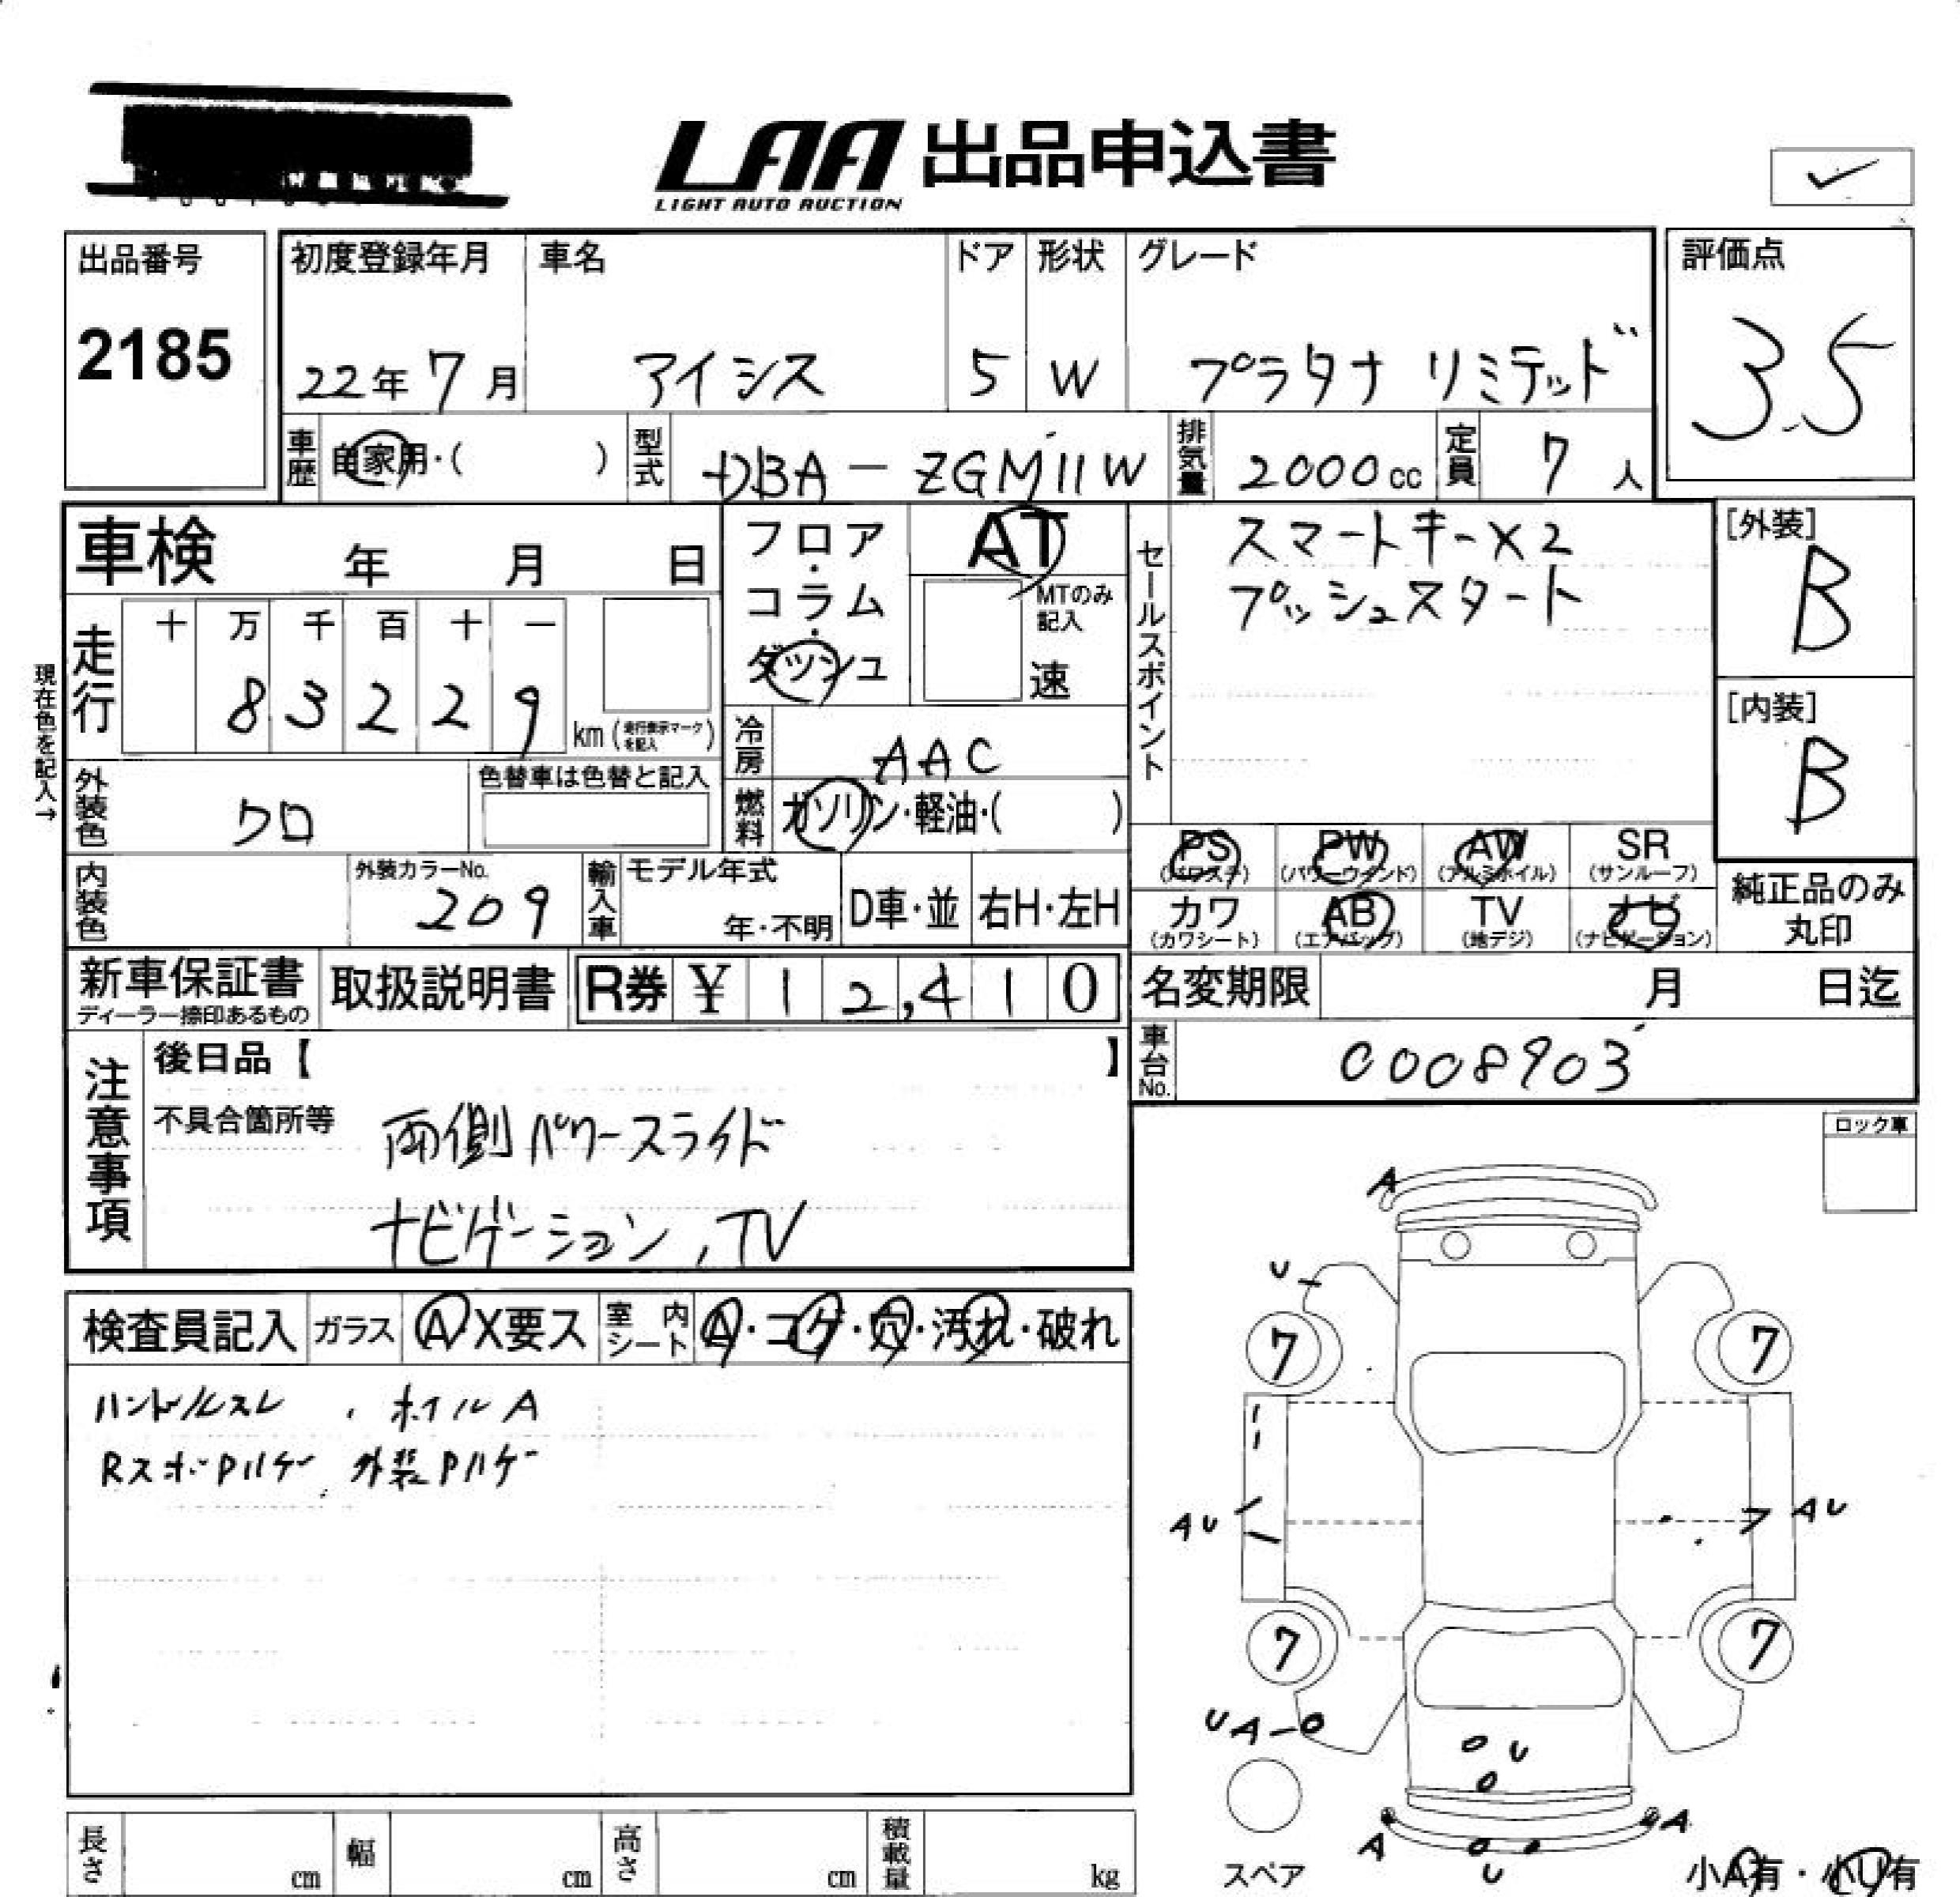 LAA 出品申込書
LIGHT AUTO AUCTION
出品番号
2185
初度登録年月
22年 7月
車名
アイシス
ドア
5
形状
W
グレード
プラタナ リミテッド
評価点
3.5
車歴
自家用・( )
型式
DBA-ZGM11W
排気量
2000cc
定員
7人
車検 年 月 日
走行
十 万 千 百 十 一
8 3 2 2 9
km (走行表示マークを記入)
現在色を記入→
フロア・コラム・ダッシュ
AT
MTのみ
記入
速
冷房
AAC
燃料
ガソリン・軽油・( )
セールスポイント
スマートキー×2
プッシュスタート
[外装]
B
[内装]
B
外装色
クロ
色替車は色替と記入
内装色
外装カラーNo.
209
輸入車
モデル年式
年・不明
D車・並
右H・左H
PS
(パワステ)
PW
(パワーウインド)
AW
(アルミホイル)
SR
(サンルーフ)
カワ
(カワシート)
AB
(エアバッグ)
TV
(地デジ)
ナビ
(ナビゲーション)
純正品のみ
丸印
新車保証書
ディーラー捺印あるもの
取扱説明書
R券 ¥ 12,410
名変期限 月 日迄
車台No.
0008903
注意事項
後日品【 】
不具合箇所等
両側パワースライド
ナビゲーション,TV
ロック車
検査員記入
ガラス
A X要ス
室内シート
A・コゲ・穴・汚れ・破れ
ハンドルスレ , ホイルA
RスポーPハゲ, 外装Pハゲ
A
U
7
7
AU
AU
7
7
UA
U
A
A
U
スペア
小A有・小U有
長さ
cm
幅
cm
高さ
cm
積載量
kg